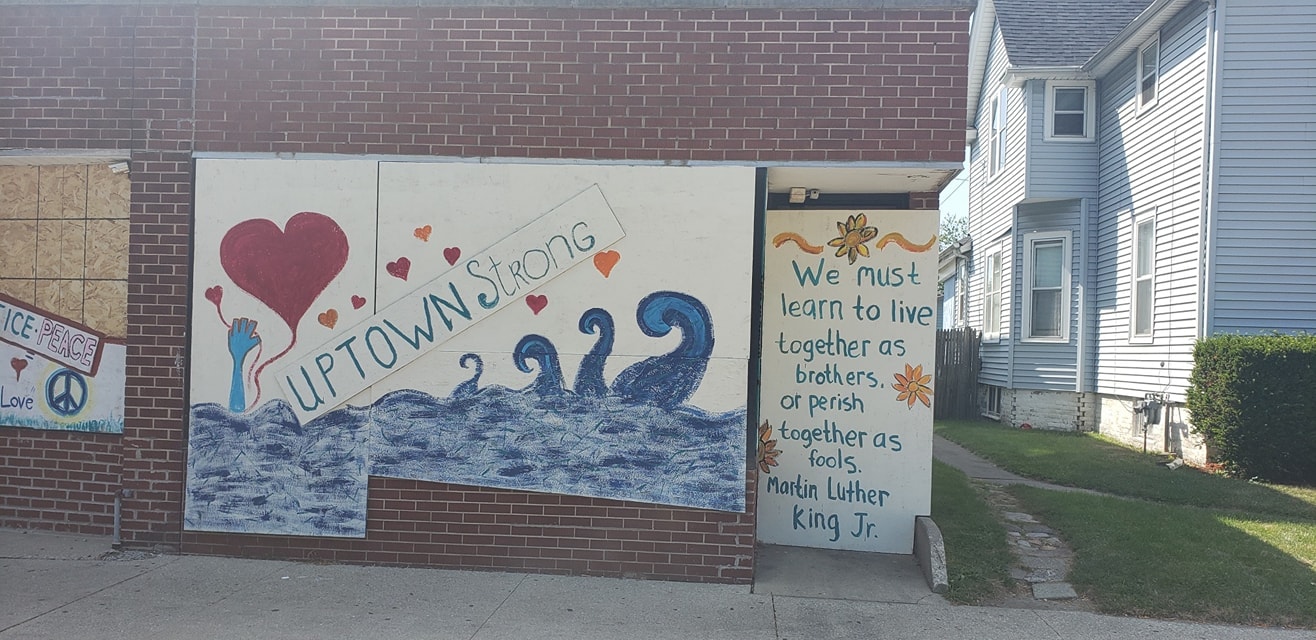 TICE·PEACE
Love
UPTOWN STRONG
We must
learn to live
together as
brothers,
or perish
together as
fools.
Martin Luther
King Jr.